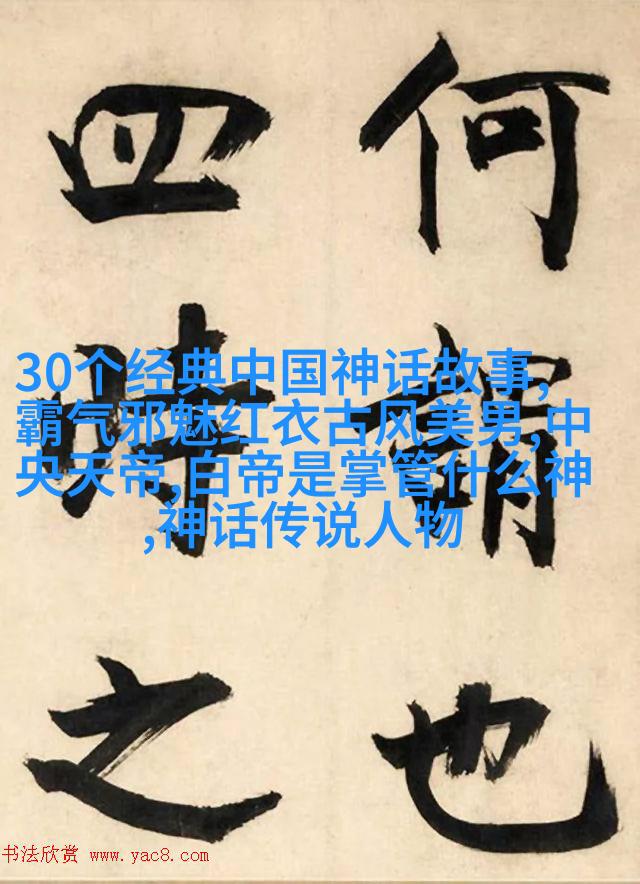 何謂也
四時之
30个经典中国神话故事,
霸气邪魅红衣古风美男,中
央天帝,白帝是掌管什么神
,神话传说人物
书法欣赏 www.yac8.com